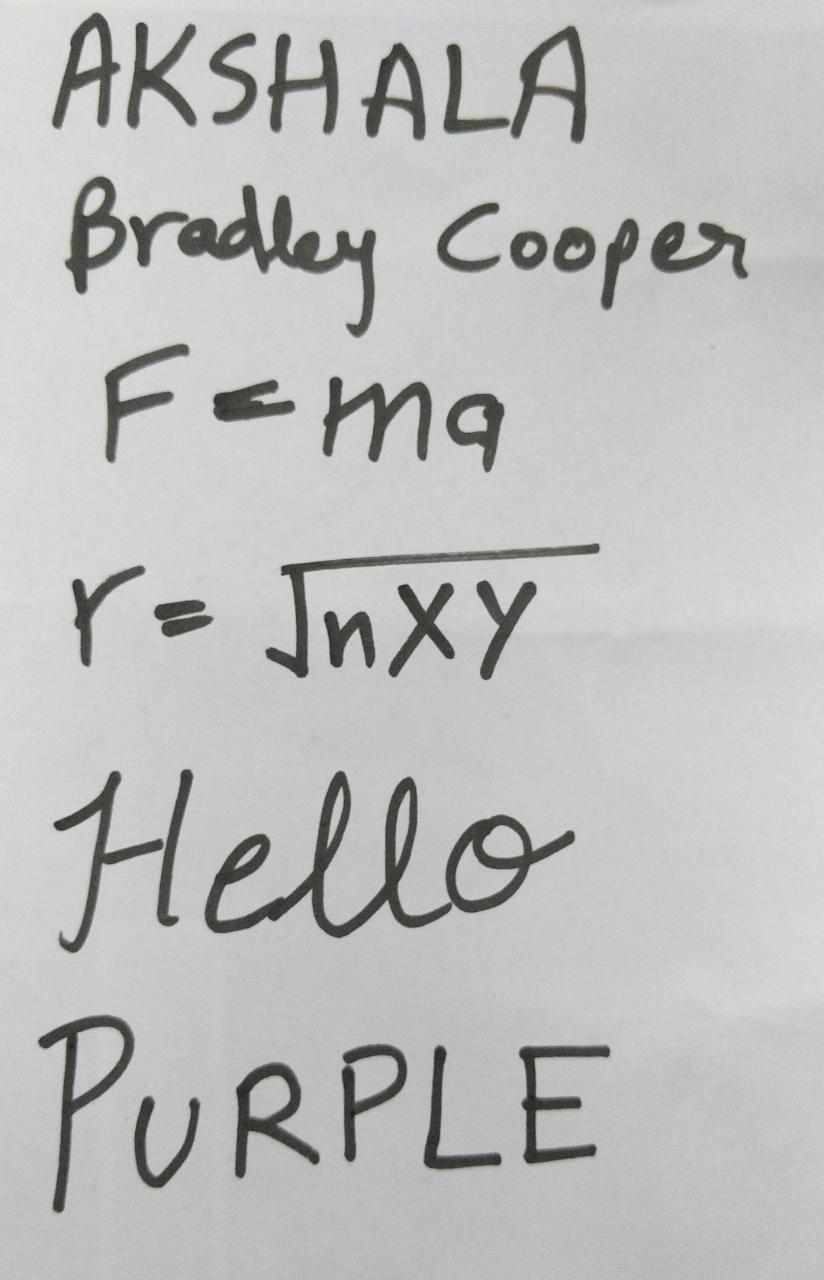 AKSHALA
Bradley Cooper
F = ma
r = √nXY
Hello
PURPLE